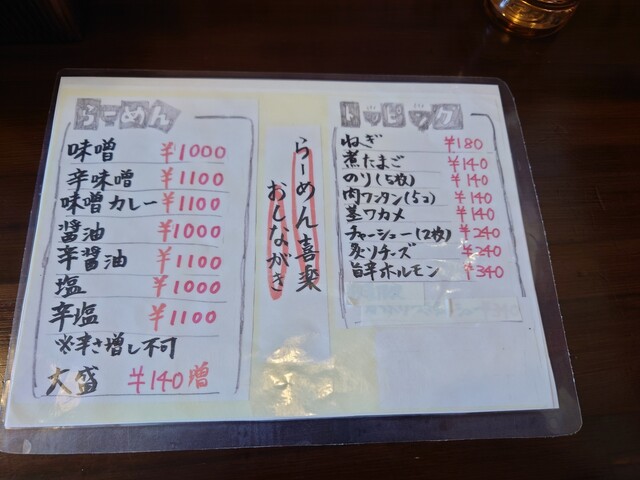 らーめん
味噌 ¥1000
辛味噌 ¥1100
味噌カレー ¥1100
醤油 ¥1000
辛醤油 ¥1100
塩 ¥1000
辛塩 ¥1100
※辛さ増し不可
大盛 ¥140増
らーめん喜楽
おしながき
トッピング
ねぎ ¥180
煮たまご ¥140
のり(5枚) ¥140
肉ワンタン(5コ) ¥140
茎ワカメ ¥140
チャーシュー(2枚) ¥240
炙りチーズ ¥240
旨辛ホルモン ¥340